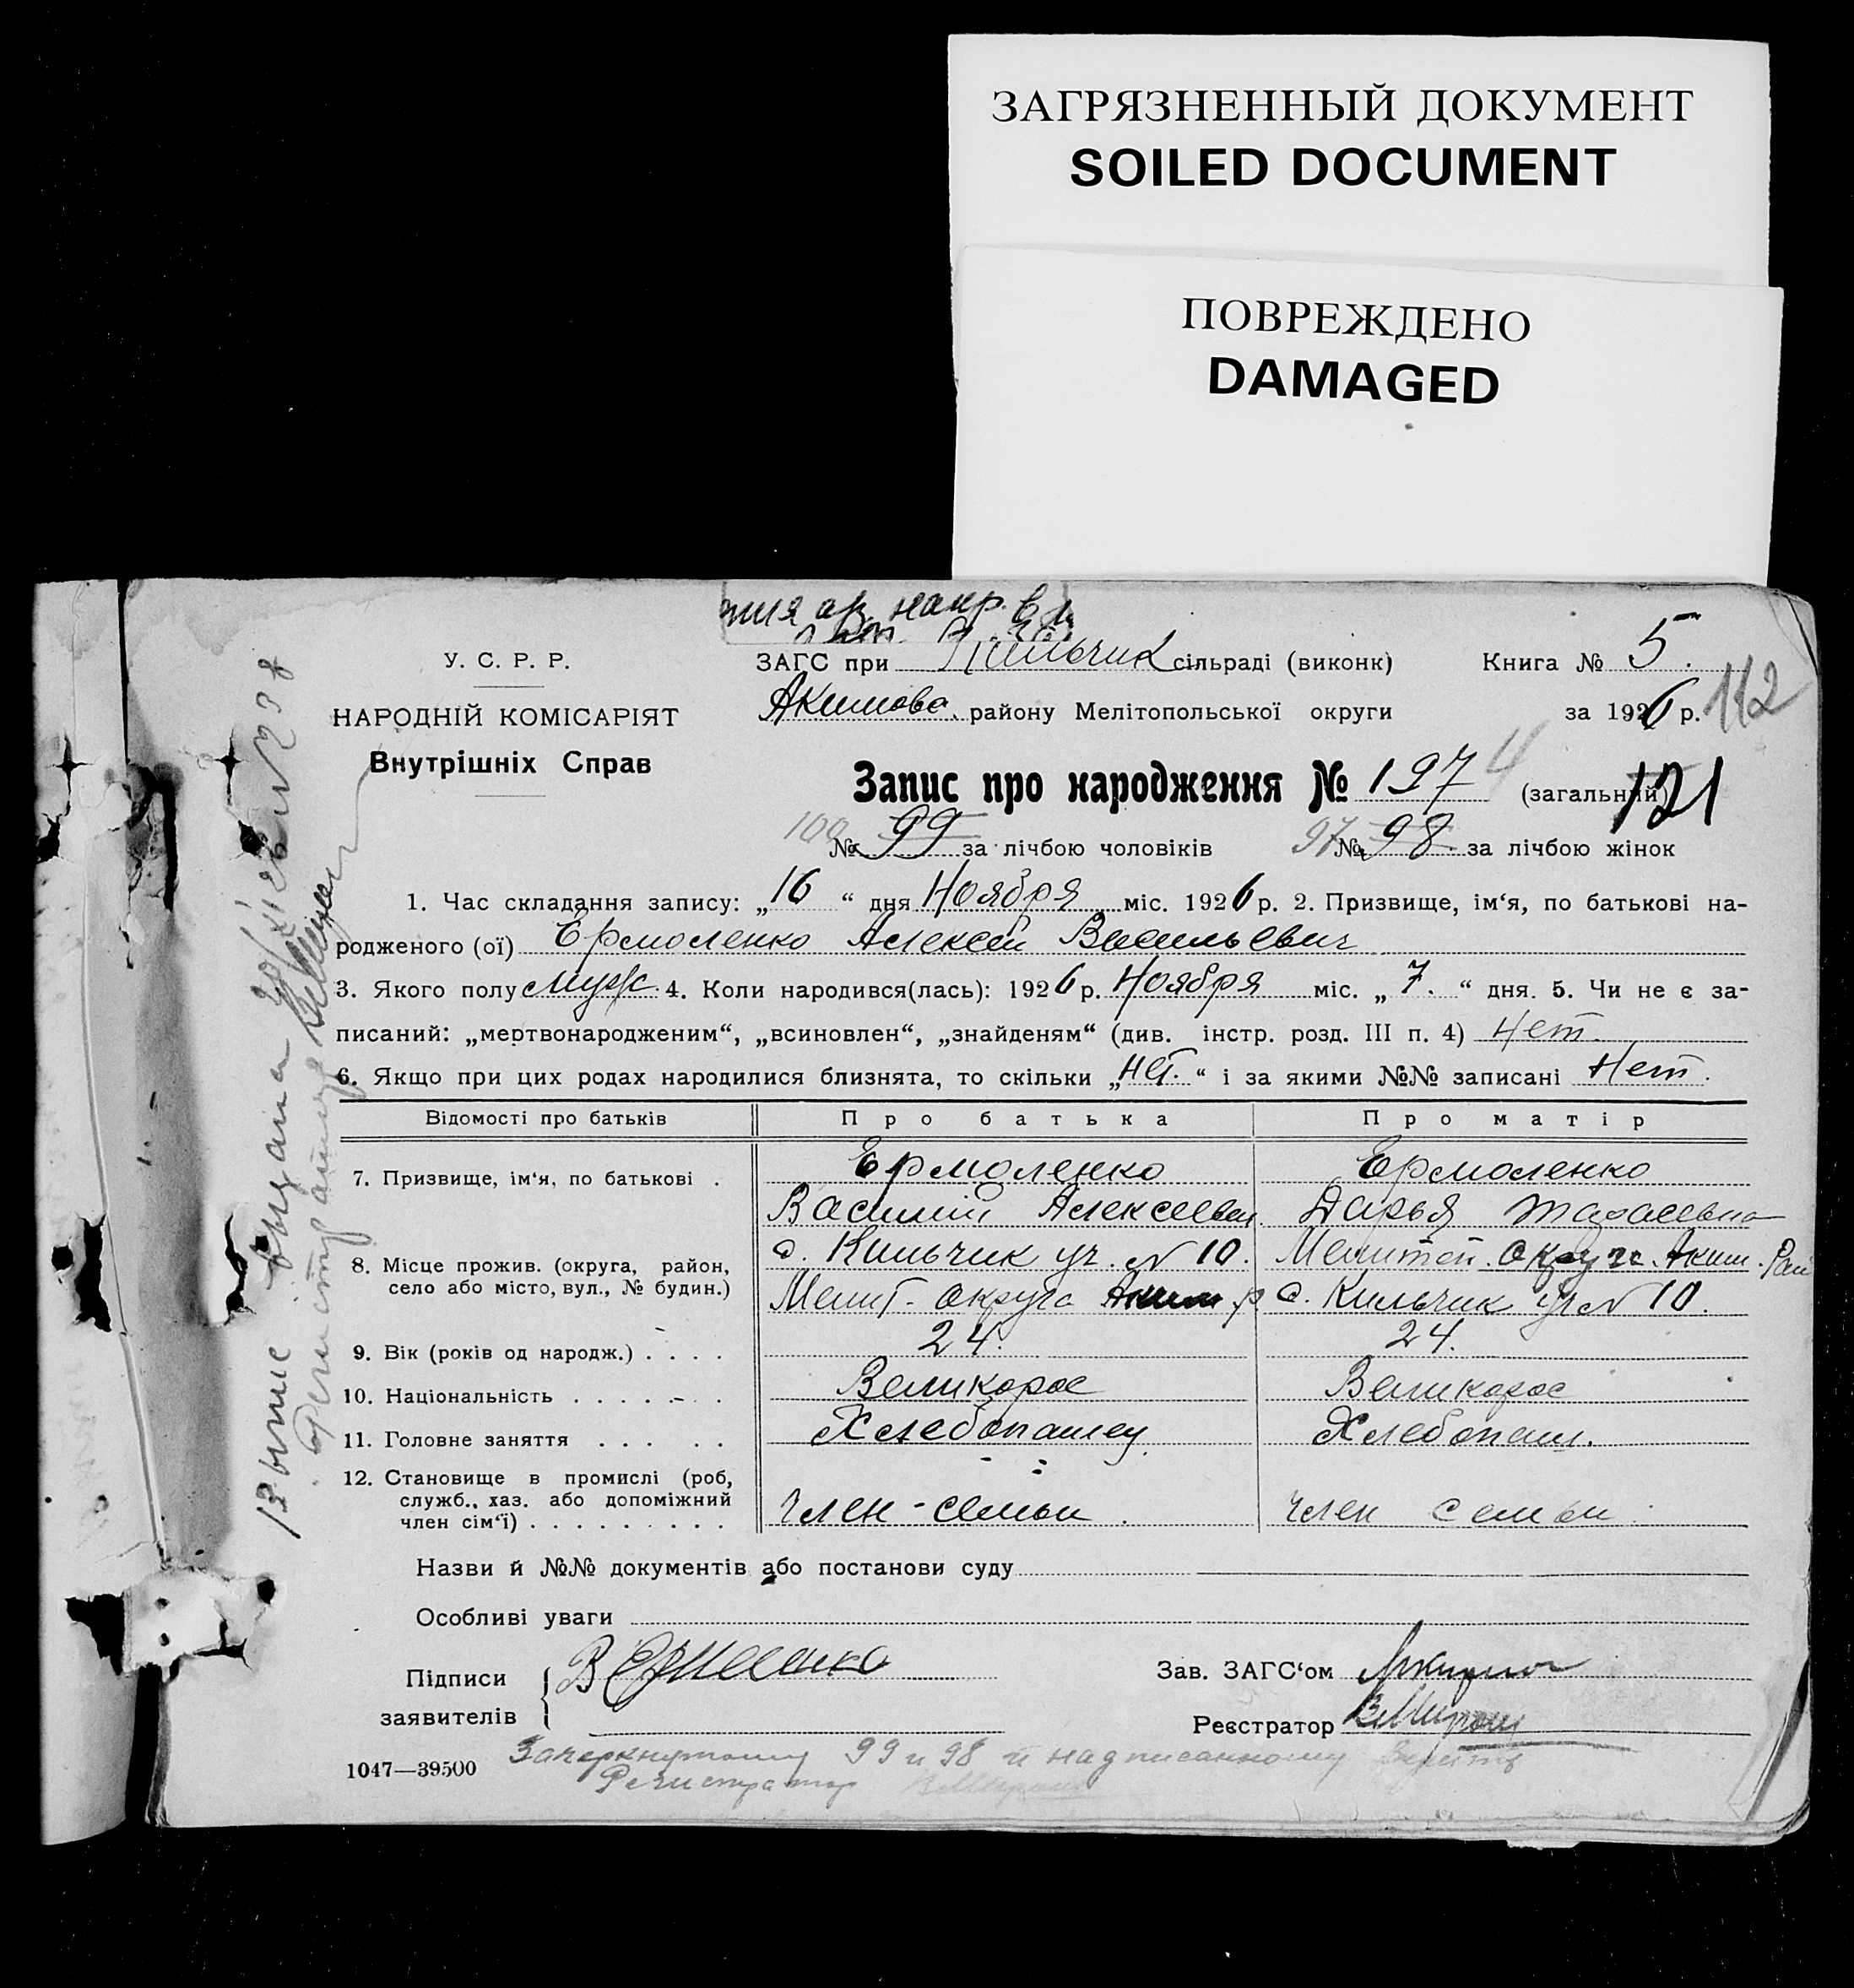 ЗАГРЯЗНЕННЫЙ ДОКУМЕНТ
SOILED DOCUMENT
ПОВРЕЖДЕНО
DAMAGED
У. С. Р. Р.
НАРОДНІЙ КОМІСАРІЯТ
Внутрішніх Справ
ЗАГС при Кильчик сільраді (виконк)
Книга № 5.
Акимово. району Мелітопольської округи
за 1926 р.
112
Запис про народження № 197 (загальний)
121
100 № 99 за лічбою чоловіків
97 № 98 за лічбою жінок
1. Час складання запису: „16“ дня Ноября міс. 1926 р. 2. Призвище, ім‘я, по батькові на-
родженого (ої) Ермоленко Алексей Васильевич
3. Якого полу муж. 4. Коли народився(лась): 1926 р. Ноября міс. „7.“ дня. 5. Чи не є за-
писаний: „мертвонародженим“, „всиновлен“, „знайденям“ (див. інстр. розд. III п. 4) Нет.
6. Якщо при цих родах народилися близнята, то скільки „нет.“ і за якими №№ записані Нет.
Відомості про батьків
Про батька
Про матір
7. Призвище, ім‘я, по батькові .
Ермоленко
Василий Алексеевич
Ермоленко
Дарья Тарасовна
8. Місце прожив. (округа, район,
село або місто, вул., № будин.)
с. Кильчик уч. № 10.
Мелит. округа Аким р
Мелитоп. Округ. Аким. Рай
с. Кильчик уч № 10.
9. Вік (років од народж.) . . . .
24.
24.
10. Національність . . . . . . .
Великорос
Великорос
11. Головне заняття . . . . .
Хлебопашец
Хлебопаш.
12. Становище в промислі (роб,
служб., хаз. або допоміжний
член сім‘ї) . . . . . . . . .
Член - семьи.
Член семьи
Назви й №№ документів або постанови суду
Особливі уваги
Підписи
заявителів
В Ермоленко
Зав. ЗАГС‘ом
Реєстратор
1047—39500
Зачеркнутому 99 и 98 и надписанному верить
Регистратор